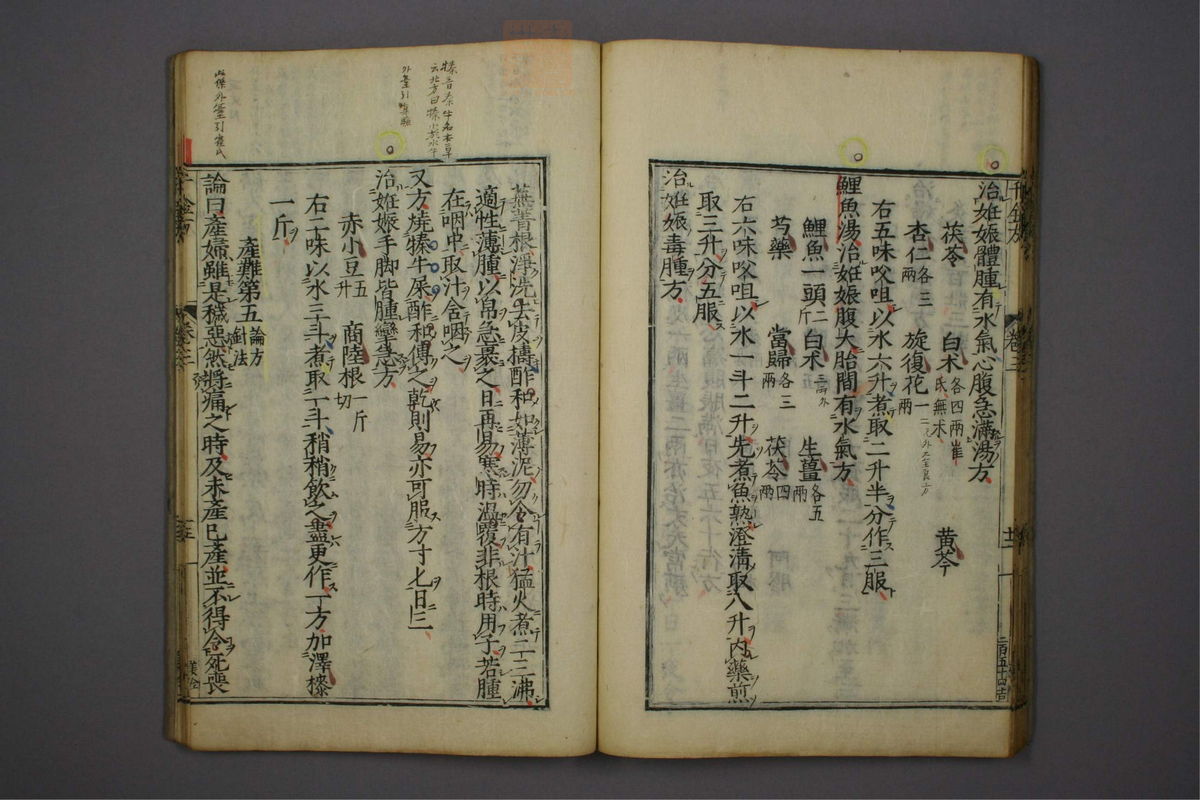 治妊娠體腫有水氣心腹急滿湯方
茯苓 白朮各四兩崔氏無朮 黄芩
杏仁各三兩 旋復花一兩
右五味㕮咀以水六升煮取二升半分作三服
鯉魚湯治妊娠腹大胎間有水氣方
鯉魚一頭二斤 白朮 生薑各五兩
芍藥 當歸各三兩 茯苓四兩
右六味㕮咀以水一斗二升先煮魚熟澄清取八升内藥煎
取三升分五服
治妊娠毒腫方
蕪菁根淨洗去皮擣酢和如薄泥勿令有汁猛火煮二三沸
適性薄腫以帛急裹之日再易寒時温覆非根時用子若腫
在咽中取汁含咽之
又方燒犢牛屎酢和傅之乾則易亦可服方寸匕日三
治妊娠手脚皆腫攣急方
赤小豆五升 商陸根一斤切
右二味以水三斗煮取一斗稍稍飲之盡更作一方加澤漆
一斤
產難第五論方針法
論曰產婦雖是穢惡然將痛之時及未產已產並不得令死喪
千金方
卷三
廿二
外臺引
此條外臺引崔氏